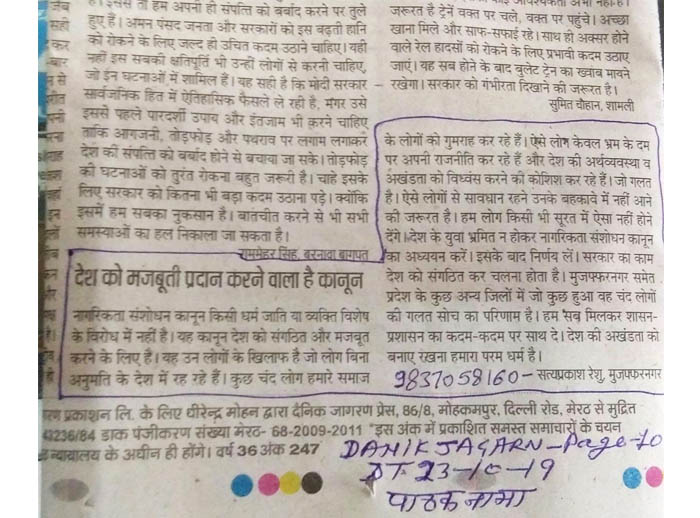 है। इससे तो हम अपनी ही संपत्ति को बर्बाद करने पर तुले
हुए हैं। अमन पंसद जनता और सरकारों को इस बढ़ती हानि
को रोकने के लिए जल्द ही उचित कदम उठाने चाहिए। यही
नहीं इस सबकी क्षतिपूर्ति भी उन्हीं लोगों से करनी चाहिए,
जो ईन घटनाओं में शामिल हैं। यह सही है कि मोदी सरकार
सार्वजनिक हित में ऐतिहासिक फैसले ले रही है, मंगर उसे
इससे पहले पारदर्शी उपाय और इंतजाम भी करने चाहिए
ताकि आगजनी, तोड़फोड़ और पथराव पर लगाम लगाकर
देश की संपत्ति को बर्बाद होने से बचाया जा सके। तोड़फोड़
की घटनाओं को तुरंत रोकना बहुत जरूरी है। चाहे इसके
लिए सरकार को कितना भी बड़ा कदम उठाना पड़े। क्योंकि
इसमें हम सबका नुकसान है। बातचीत करने से भी सभी
समस्याओं का हल निकाला जा सकता है।
राममेहर सिंह, बरनावा बागपत
देश को मजबूती प्रदान करने वाला है कानून
नागरिकता संशोधन कानून किसी धर्म जाति या व्यक्ति विशेष
के विरोध में नहीं है। यह कानून देश को संगठित और मजबूत
करने के लिए है। यह उन लोगों के खिलाफ है जो लोग बिना
अनुमति के देश में रह रहे हैं। कुछ चंद लोग हमारे समाज
जरूरत है ट्रेनें वक्त पर चले, वक्त पर पहुंचे। अच्छा
खाना मिले और साफ-सफाई रहे। साथ ही अक्सर होने
वाले रेल हादसों को रोकने के लिए प्रभावी कदम उठाए
जाएं। यह सब होने के बाद बुलेट ट्रेन का ख्वाब मायने
रखेगा। सरकार को गंभीरता दिखाने की जरूरत है।
सुमित चौहान, शामली
के लोगों को गुमराह कर रहे हैं। ऐसे लोग केवल भ्रम के दम
पर अपनी राजनीति कर रहे हैं और देश की अर्थव्यवस्था व
अखंडता को विध्वंस करने की कोशिश कर रहे हैं। जो गलत
है। ऐसे लोगों से सावधान रहने उनके बहकावे में नहीं आने
की जरूरत है। हम लोग किसी भी सूरत में ऐसा नहीं होने
देंगे। देश के युवा भ्रमित न होकर नागरिकता संशोधन कानून
का अध्ययन करें। इसके बाद निर्णय लें। सरकार का काम
देश को संगठित कर चलना होता है। मुजफ्फरनगर समेत
प्रदेश के कुछ अन्य जिलों में जो कुछ हुआ वह चंद लोगों
की गलत सोच का परिणाम है। हम सब मिलकर शासन-
प्रशासन का कदम-कदम पर साथ दें। देश की अखंडता को
बनाए रखना हमारा परम धर्म है।
9837058160 – सत्यप्रकाश रेशु, मुजफ्फरनगर
रण प्रकाशन लि. के लिए धीरेन्द्र मोहन द्वारा दैनिक जागरण प्रेस, 86/8, मोहकमपुर, दिल्ली रोड, मेरठ से मुद्रित
43236/84 डाक पंजीकरण संख्या मेरठ- 68-2009-2011 *इस अंक में प्रकाशित समस्त समाचारों के चयन
न्यायालय के अधीन ही होंगे। वर्ष 36 अंक 247
DANIK JAGARN-Page-10
DT-23-10-19
पाठकनामा